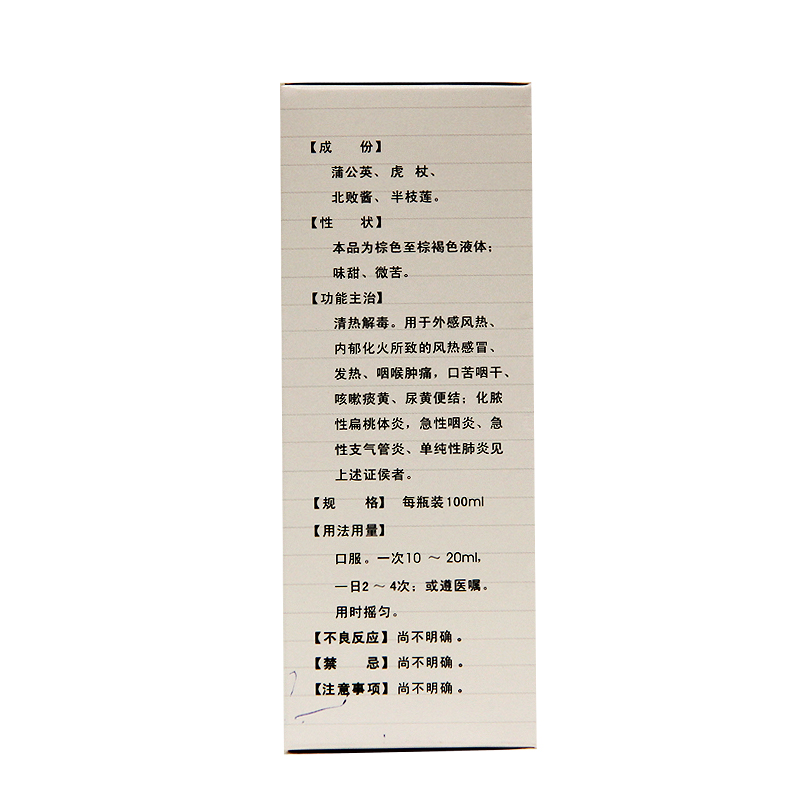 【成　份】
蒲公英、虎 杖、
北败酱、半枝莲。
【性　状】
本品为棕色至棕褐色液体；
味甜、微苦。
【功能主治】
清热解毒。用于外感风热、
内郁化火所致的风热感冒、
发热、咽喉肿痛，口苦咽干、
咳嗽痰黄、尿黄便结；化脓
性扁桃体炎，急性咽炎、急
性支气管炎、单纯性肺炎见
上述证侯者。
【规　格】 每瓶装100ml
【用法用量】
口服。一次10 ～ 20ml,
一日2 ～ 4次；或遵医嘱。
用时摇匀。
【不良反应】尚不明确。
【禁　忌】尚不明确。
【注意事项】尚不明确。